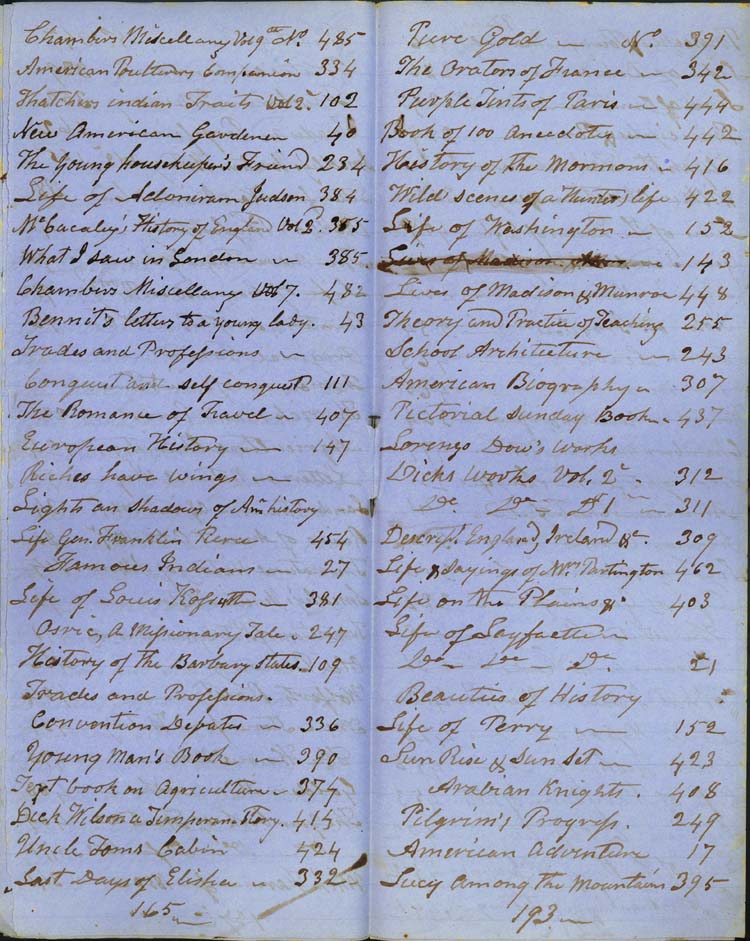 Chambers Miscellany Vol 9th No. 485
American Poulterers Companion 334
Thatchers indian Traits Vol 2. 102
New American Gardener 40
The Young housekeeper's Friend 234
Life of Adoniram Judson 384
McCacaley's History of England Vol 2. 355
What I saw in London 385
Chambers Miscellany Vol 7. 482
Bennit's letters to a young lady. 43
Trades and Professions
Conquest and self conquest 111
The Romance of Travel 407
European History 147
Riches have wings
Lights an shadows of Am history
Life Gen. Franklin Pierce 454
Famous Indians 27
Life of Louis Kossuth 381
Osric, a Missionary Tale. 247
History of the Barbary States. 109
Trades and Professions.
Convention Debates 336
Young Man's Book 390
Text book on Agriculture 374
Dick Wilson a Temperan Story. 414
Uncle Toms Cabin 424
Last Days of Elisha 332
165
Pure Gold No. 391
The Orators of France 342
Purple Tints of Paris 444
Book of 100 Anecdotes 442
History of the Mormons 416
Wild scenes of a Hunters life 422
Life of Washington 152
Lives of Madison 143
Lives of Madison & Munroe 448
Theory and Practice of Teaching 255
School Architecture 243
American Biography 307
Pictorial Sunday Book 437
Lorenzo Dow's Works
Dicks Works Vol. 2. 312
Do. Do. 1 311
Descrip. England, Ireland &c. 309
Life & sayings of Mrs Partington 462
Life on the Plains &c 403
Life of Layfaette
Do Do Do. 21
Beauties of History
Life of Perry 152
Sun Rise & Sun Set 423
Arabian Knights. 408
Pilgrim's Progress. 249
American Adventure 17
Lucy Among the Mountains 395
193